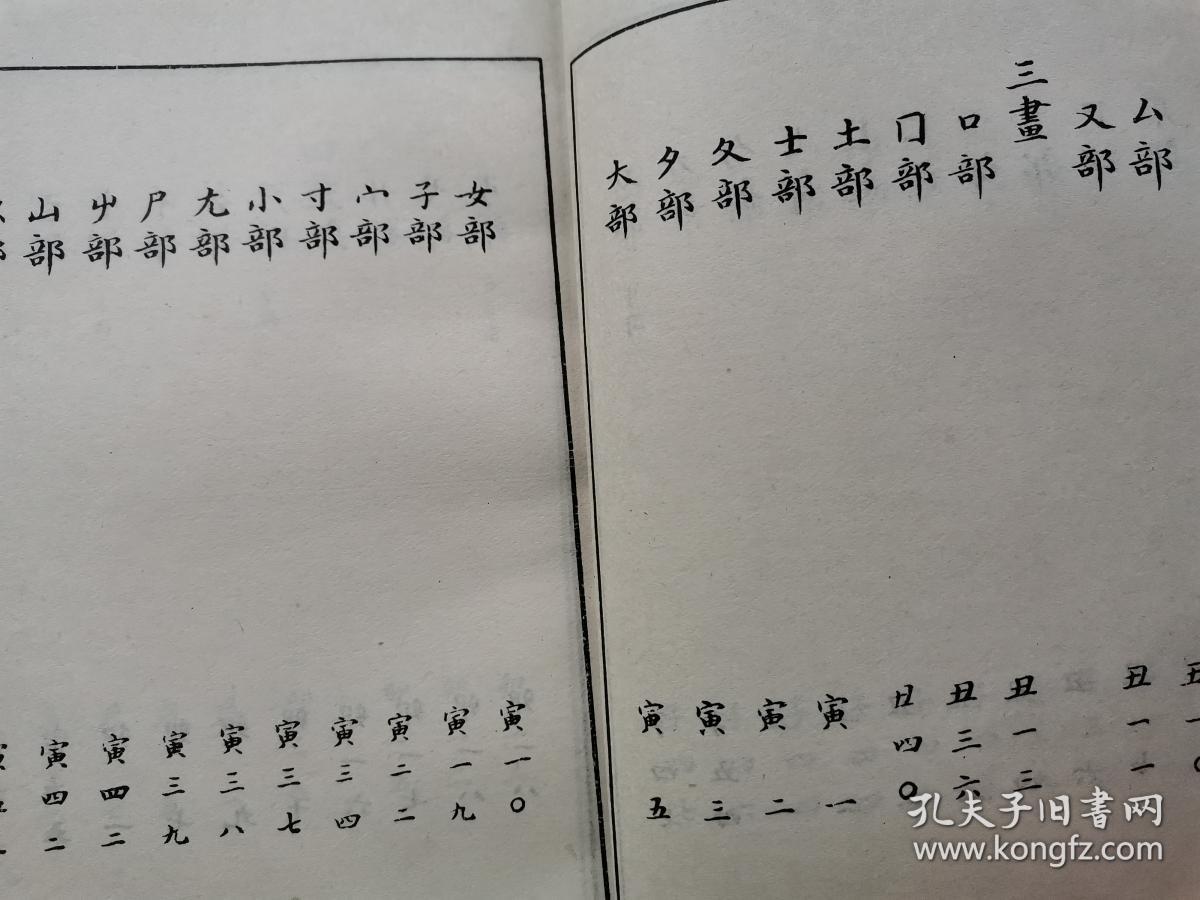 厶部 丑一〇
又部 丑一一
三畫
口部 丑一三
冂部 丑三六
土部 丑四〇
士部 寅一
夂部 寅二
夕部 寅三
大部 寅五
女部 寅一〇
子部 寅一九
宀部 寅二二
寸部 寅三四
小部 寅三七
尢部 寅三八
尸部 寅三九
屮部 寅四二
山部 寅四二
孔夫子旧书网
www.kongfz.com